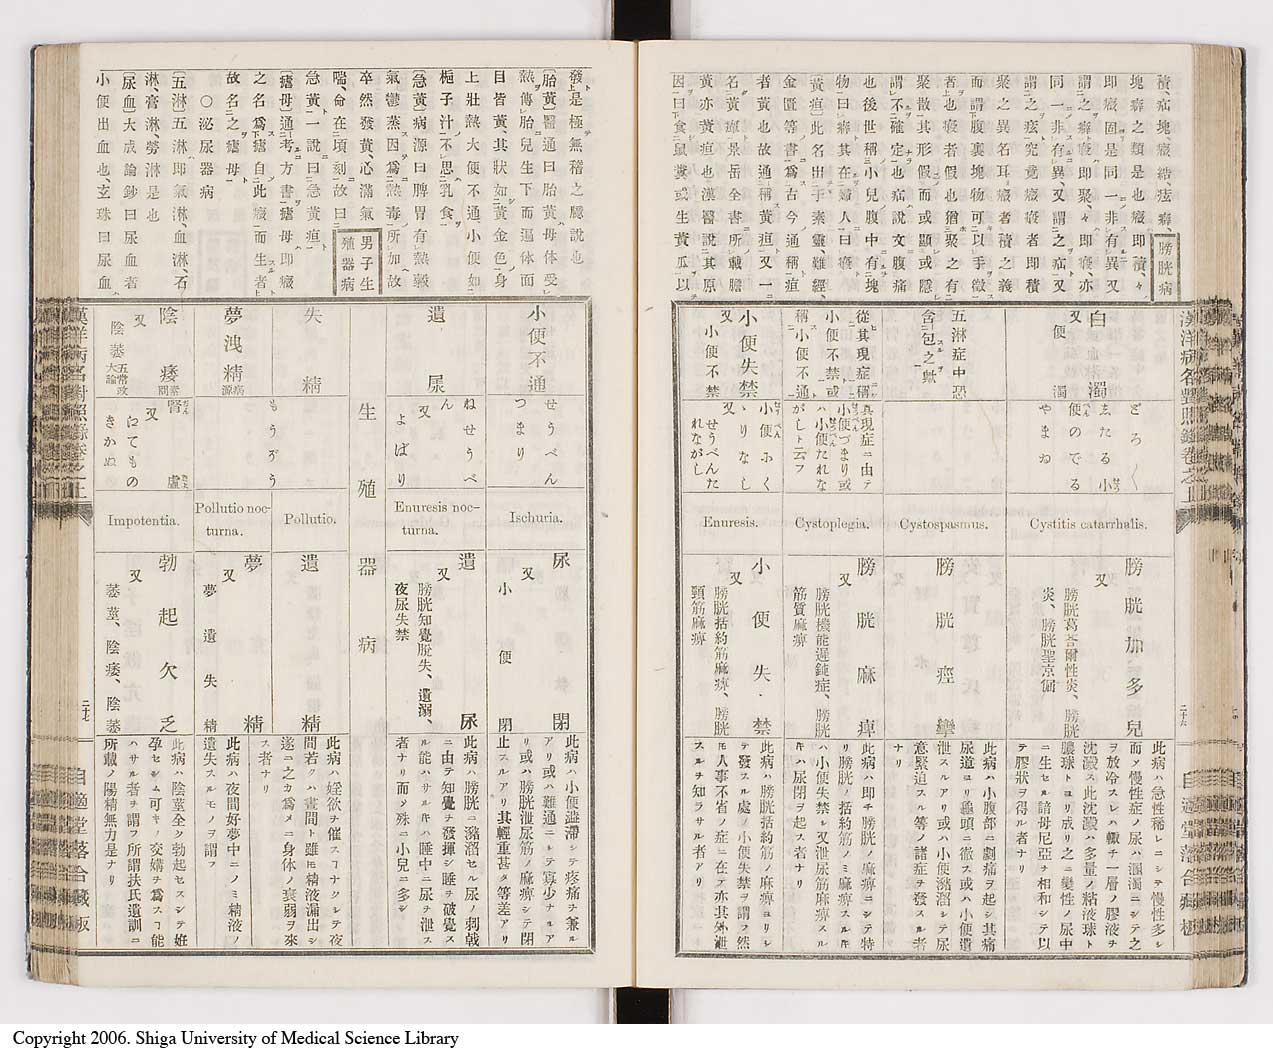 積、疝塊、癥結、痃癖、
塊癖之類是也癥即積、々
即癥固是同一非有異又
謂之癖、癥即聚、々即癥、亦
同一非有異、又謂之疝又
謂之痃究竟癥瘕者即積
聚之異名耳癥者、積之義
而謂腹裏塊物可以手徵
者也瘕者假也猶聚之有
聚散其形假而或顯或隱
謂不確定也疝說文腹痛
也後世稱小兒腹中有塊
物曰癖其在婦人曰瘕
黃疸此名出于素靈、難經、
金匱等書爲古今通稱疸
者黃也故通稱黃疸又一
名黃癉景岳全書所載膽
黃亦黃疸也漢醫說其原
因曰食鼠糞或生黃瓜以
膀胱病
漢洋病名對照錄卷之上
白濁
又
便濁
五淋症中恐
含包之歟
從其現症稱
小便不禁或
稱小便不通
小便失禁
又
小便不禁
どろく
ゑたる小
便のでる
やまゐ
眞現症ニ由テ
小便づまり或
ハ小便たれな
がしト云フ
小便ふく
ゝりなし
又
せうべんた
れながし
Cystitis catarrhalis.
Cystospasmus.
Cystoplegia.
Enuresis.
膀胱加多兒
又
膀胱葛答爾性炎、膀胱
炎、膀胱聖京偏
膀胱痙攣
膀胱麻痺
又
膀胱機能遲鈍症、膀胱
筋質麻痺
小便失禁
又
膀胱括約筋麻痺、膀胱
頸筋麻痺
此病ハ急性稀レニシテ慢性多シ
而メ慢性症ノ尿ハ溷濁ニシテ之
ヲ放冷スレハ輙チ一層ノ膠液ヲ
沈澱ス此沈澱ハ多量ノ粘液球ト
膿球トヨリ成リ之ニ變性ノ尿中
ニ生セル諳母尼亞ヲ相和シテ以
テ膠狀ヲ得ル者ナリ
此病ハ小腹部ニ劇痛ヲ起シ其痛
尿道ヨリ龜頭ニ徹ス或ハ小便遺
泄スルアリ或ハ小便瀦滔シテ尿
意緊迫スル等ノ諸症ヲ發スル者
ナリ
此病ハ即チ膀胱ノ麻痺ニシテ特
リ膀胱ノ括約筋ノミ麻痺スルキ
ハ小便失禁シ又泄尿筋麻痺スル
キハ尿閉ヲ起ス者ナリ
此病ハ膀胱括約筋ノ麻痺ヨリシ
テ發スル處ノ小便失禁ヲ謂フ然
モ人事不省ノ症ニ在テ亦其外泄
スルヲ知ラサル者アリ
二十六
發是極無稽之臆說也
胎黃醫通曰胎黃、母體受
熱傳胎兒生下而遍体而
目皆黃、其狀如黃金色身
上壯熱大便不通、小便如
梔子汁不思乳食、
急黃病源曰脾胃有熱穀
氣鬱蒸因爲熱毒所加故
卒然發黃、心滿氣
喘、命在頃刻故曰
急黃一說曰急黃疸
瘧母通考方書瘧母即癥
之名爲瘧自此癥而生者
故名之瘧母
○泌尿器病
五淋五淋即氣淋、血淋、石
淋、膏淋、勞淋是也
尿血大成論鈔曰尿血者
小便出血也、玄珠曰尿血
男子生
殖器病
小便不通
遺尿
失精
夢洩精
病源
陰痿
素問
又
陰萎
五常政
大論
せうべん
つまり
ねせうべ
ん
又
よばり
もうろう
腎虛
又
にてもの
きかぬ
生殖器病
Ischuria.
Enuresis noc-
turna.
Pollutio.
Pollutio noc-
turna.
Impotentia.
尿閉
又
小便閉
遺尿
又
膀胱知覺脫失、遺溺、
夜尿失禁
遺精
夢精
又
夢遺失精
勃起欠乏
又
萎莖、陰痿、陰萎
此病ハ小便澁滯シテ疼痛ヲ兼ル
アリ或ハ難通ニシテ寡少ナルア
リ或ハ膀胱泄尿筋ノ麻痺シテ閉
止スルアリ其輕重甚タ等差アリ
此病ハ膀胱ニ瀦滔セル尿ノ刺戟
ニ由テ知覺ヲ發揮シ睡ヲ破覺ス
ル能ハサルキハ睡中ニ尿ヲ泄ス
者ナリ而メ殊ニ小兒ニ多シ
此病ハ婬欲ヲ催スコナクシテ夜
間若クハ晝間ト雖モ精液漏出シ
遂ニ之カ爲メニ身体ノ衰弱ヲ來
ス者ナリ
此病ハ夜間好夢中ニノミ精液ノ
遺失スルモノヲ謂フ
此病ハ陰莖全ク勃起セスシテ姙
孕セシム可キノ交媾ヲ爲スコ能
ハサル者ヲ謂フ所謂扶氏遺訓ニ
所載ノ陽精無力是ナリ
二十七
自適堂落合藏板
Copyright 2006. Shiga University of Medical Science Library